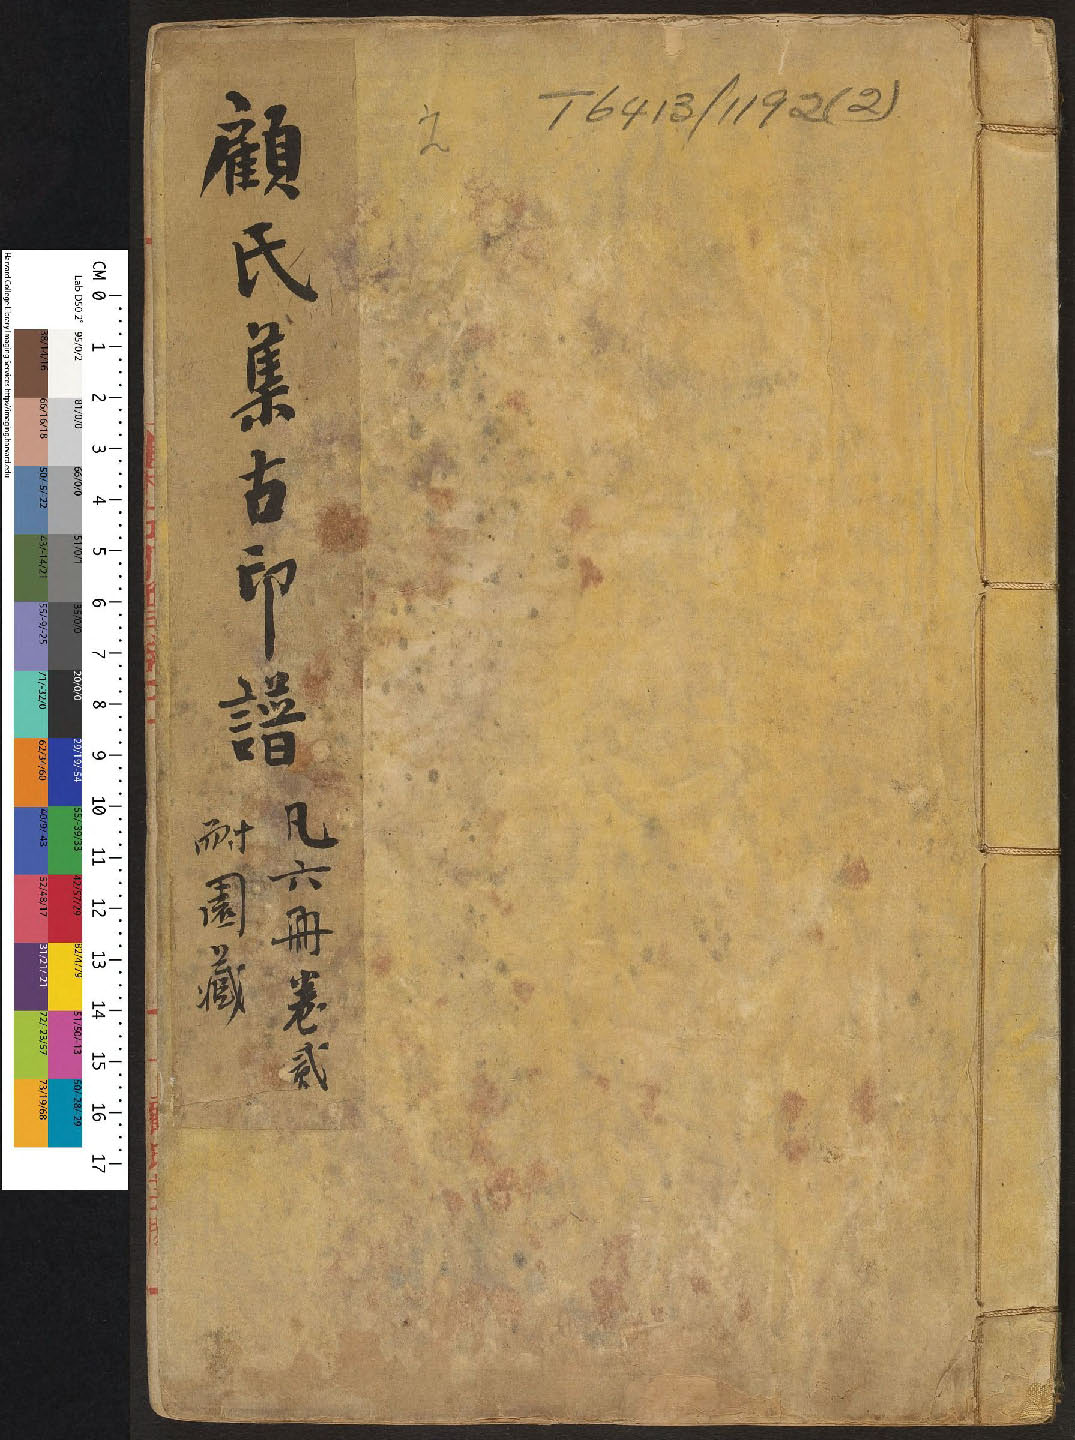 T6413/1192(2)
顧氏集古印譜
凡六冊卷貳
耐園藏
CM 0 1 2 3 4 5 6 7 8 9 10 11 12 13 14 15 16 17
Lab D50 2° 95/0/2 81/0/0 66/0/0 51/0/1 35/0/0 20/0/0 29/19/-54 55/-39/33 42/57/29 82/4/79 51/50/-13 50/-28/-29
38/14/16 66/16/18 50/-5/-22 43/-14/21 55/-9/-25 71/-32/0 62/34/60 40/9/-43 52/48/17 31/21/-21 72/-23/57 73/19/68
Harvard College Library Imaging Services http://imaging.harvard.edu